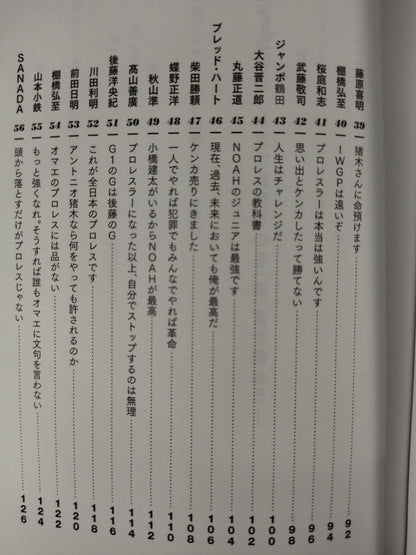 藤原喜明 39 猪木さんに命預けます 92
棚橋弘至 40 IWGPは遠いぞ 94
桜庭和志 41 プロレスラーは本当は強いんです 96
武藤敬司 42 思い出とケンカしたって勝てない 98
ジャンボ鶴田 43 人生はチャレンジだ 100
大谷晋二郎 44 プロレスの教科書 102
丸藤正道 45 NOAHのジュニアは最強です 104
ブレッド・ハート 46 現在、過去、未来においても俺が最高だ 106
柴田勝頼 47 ケンカ売りにきました 108
蝶野正洋 48 一人でやれば犯罪でもみんなでやれば革命 110
秋山準 49 小橋建太がいるからNOAHが最高 112
髙山善廣 50 プロレスラーになった以上、自分でストップするのは無理 114
後藤洋央紀 51 G1のGは後藤のG 116
川田利明 52 これが全日本のプロレスです 118
前田日明 53 アントニオ猪木なら何をやっても許されるのか 120
棚橋弘至 54 オマエのプロレスには品がない 122
山本小鉄 55 もっと強くなれ。そうすれば誰もオマエに文句を言わない 124
SANADA 56 頭から落とすだけがプロレスじゃない 126